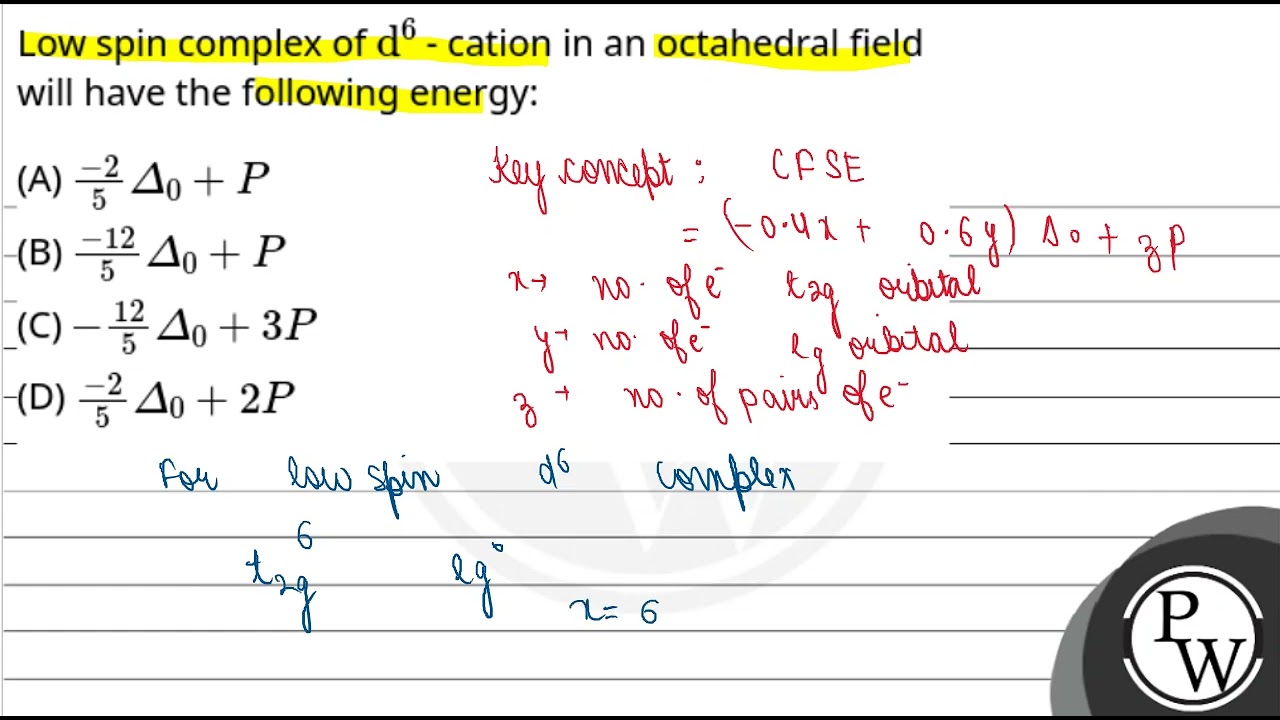 Low spin complex of d⁶ - cation in an octahedral field
will have the following energy:
(A) −2/5 Δ₀ + P
(B) −12/5 Δ₀ + P
(C) − 12/5 Δ₀ + 3P
(D) −2/5 Δ₀ + 2P
Key concept : CFSE
= (-0.4x + 0.6y) Δ₀ + zP
x → no. of e⁻ t₂g orbital
y → no. of e⁻ eg orbital
z → no. of pairs of e⁻
For low spin d⁶ complex
t₂g⁶ eg⁰
x = 6
P
W